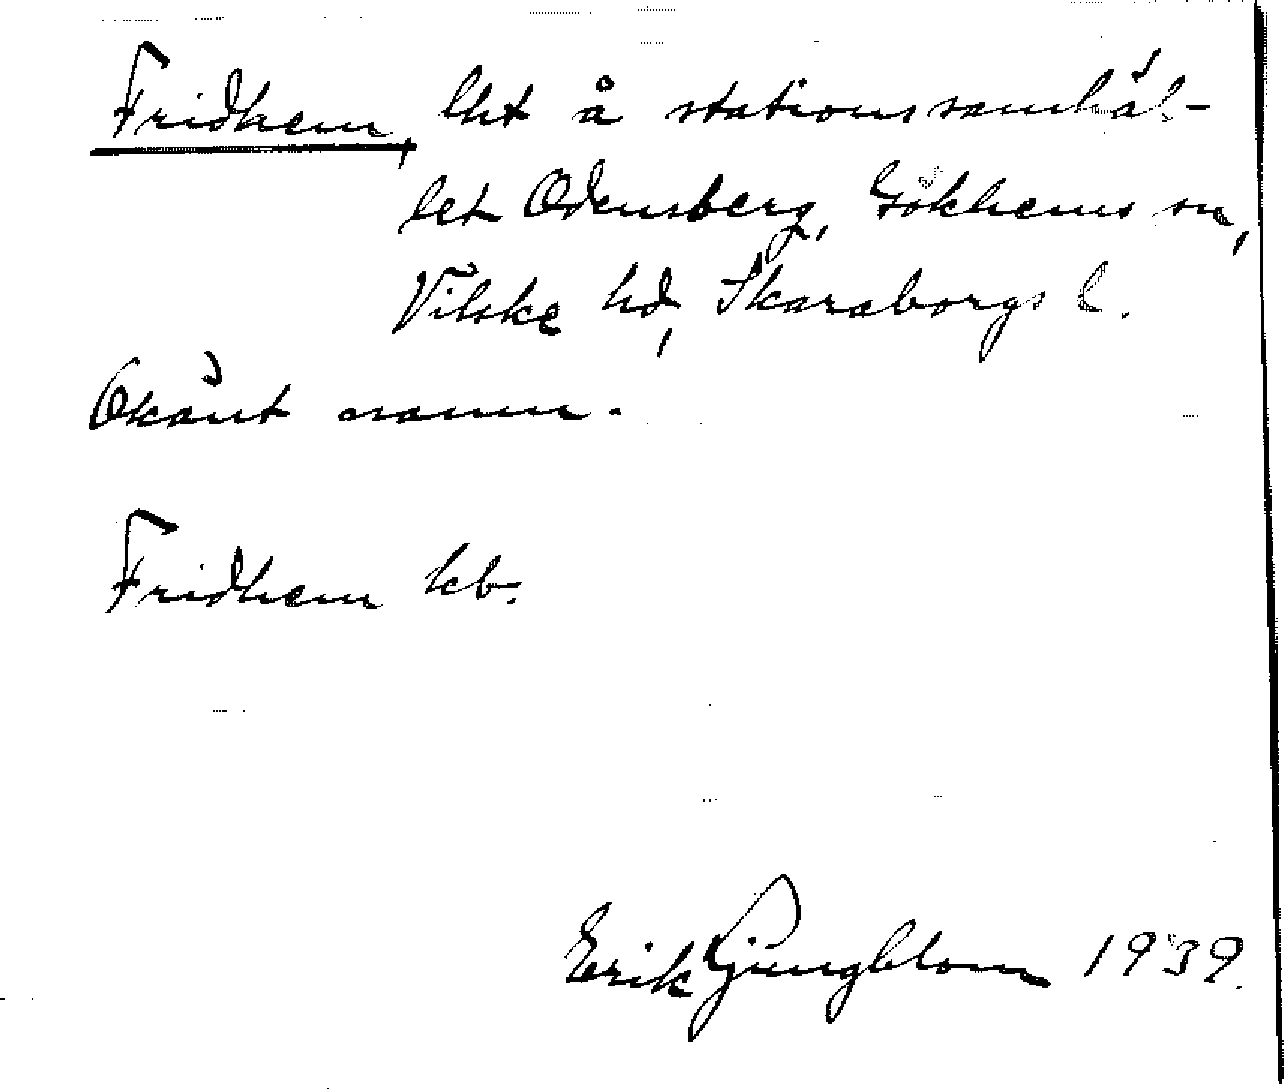 Fridhem, lht å stationssamhäl-
let Odensberg, Gökhems sn,
Vilske hd, Skaraborgs l.
Okänt namn.
Fridhem kb.
Erik Ljungblom 1939.